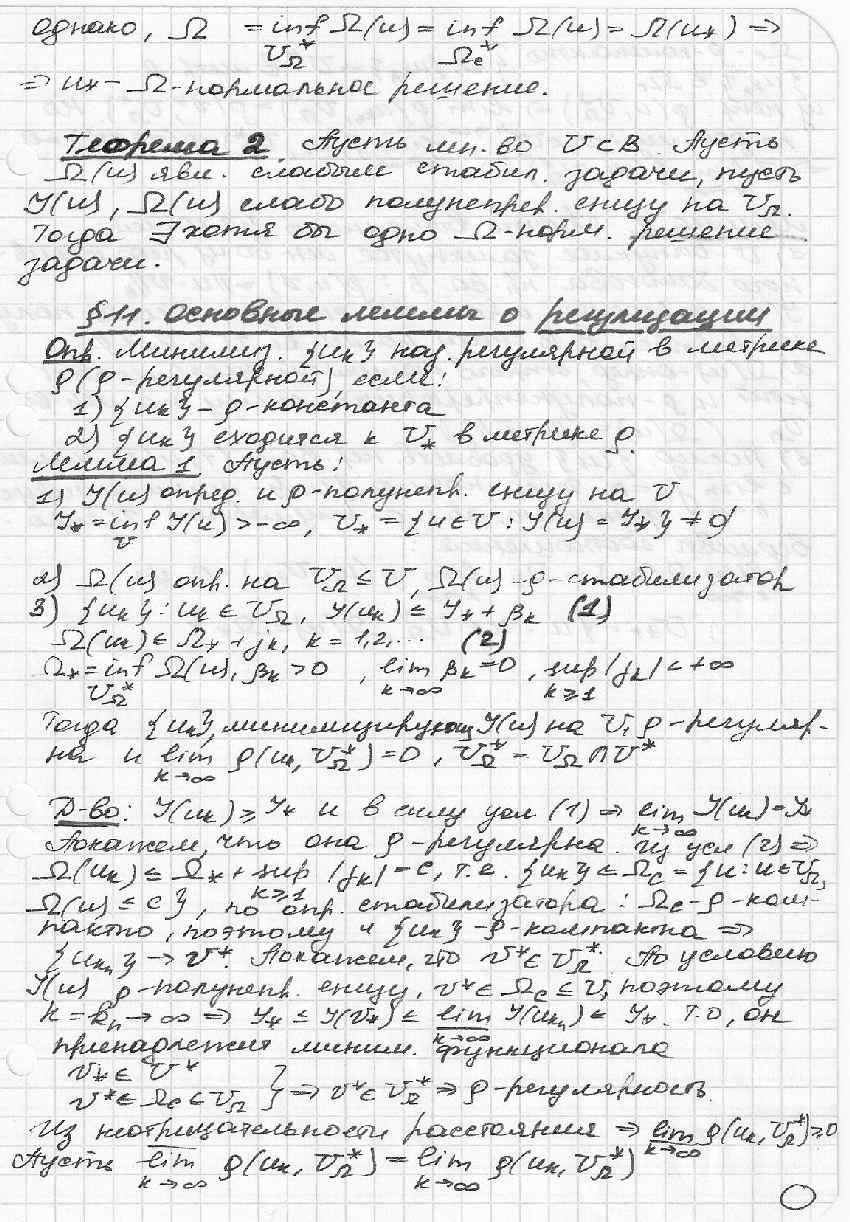 однако, Ω = inf Ω(u) = inf Ω(u) = Ω(u*) ⇒
U_Ω^* Ω_c^*
⇒ u* – Ω-нормальное решение.
Теорема 2. Пусть мн.во U⊂B. Пусть
Ω(u) явл. слабым стабил. задачи, пусть
J(u), Ω(u) слабо полунепрер. снизу на U_Ω.
Тогда ∃ хотя бы одно Ω-норм. решение
задачи.
§11. Основные леммы о регулизации
Опр. Минимиз. {u_k} наз. регулярной в метрике
ρ (ρ-регулярной), если:
1) {u_k} – ρ-константа
2) {u_k} сходится к U_* в метрике ρ.
Лемма 1. Пусть:
1) J(u) опред. и ρ-полунепр. снизу на U
J_* = inf J(u) > -∞, U_* = {u∈U : J(u) = J_*} ≠ ∅
U
2) Ω(u) опр. на U_Ω ⊆ U, Ω(u) - ρ-стабилизатор
3) {u_k} : u_k ∈ U_Ω, J(u_k) ≤ J_* + β_k (1)
Ω(u_k) ≤ Ω_* + j_k, k = 1,2,... (2)
Ω_* = inf Ω(u), β_k > 0, lim β_k = 0, sup |j_k| < +∞
U_Ω^* k→∞ k≥1
Тогда {u_k}, минимизирующ J(u) на U, ρ-регуляр-
на и lim ρ(u_k, U_Ω^*) = 0, U_Ω^* = U_Ω ∩ U^*
k→∞
Д-во: J(u_k) ≥ J_* и в силу усл (1) ⇒ lim J(u_k) = J_*
k→∞
Покажем, что она ρ-регулярна. Из усл (2) ⇒
Ω(u_k) ≤ Ω_* + sup |j_k| = c, т.е. {u_k} ⊆ Ω_c = {u : u∈U_Ω,
k≥1
Ω(u) ≤ c}, по опр. стабилизатора : Ω_c - ρ-ком-
пактно, поэтому и {u_k} - ρ-компактна ⇒
{u_kn} → v*. Покажем, что v* ∈ U_Ω^*. По условию
J(u) ρ-полунепр. снизу, v* ∈ Ω_c ⊆ U, поэтому
k = k_n → ∞ ⇒ J_* ≤ J(v*) ≤ lim J(u_kn) ≤ J_*. Т.о, он
k→∞
принадлежит миним. функционала
v* ∈ U^*
v* ∈ Ω_c ⊆ U_Ω } ⇒ v* ∈ U_Ω^* ⇒ ρ-регулярность.
Из неотрицательности расстояния ⇒ lim ρ(u_k, U_Ω^*) ≥ 0
k→∞
Пусть lim ρ(u_k, U_Ω^*) = lim ρ(u_k, U_Ω^*)
k→∞ k→∞